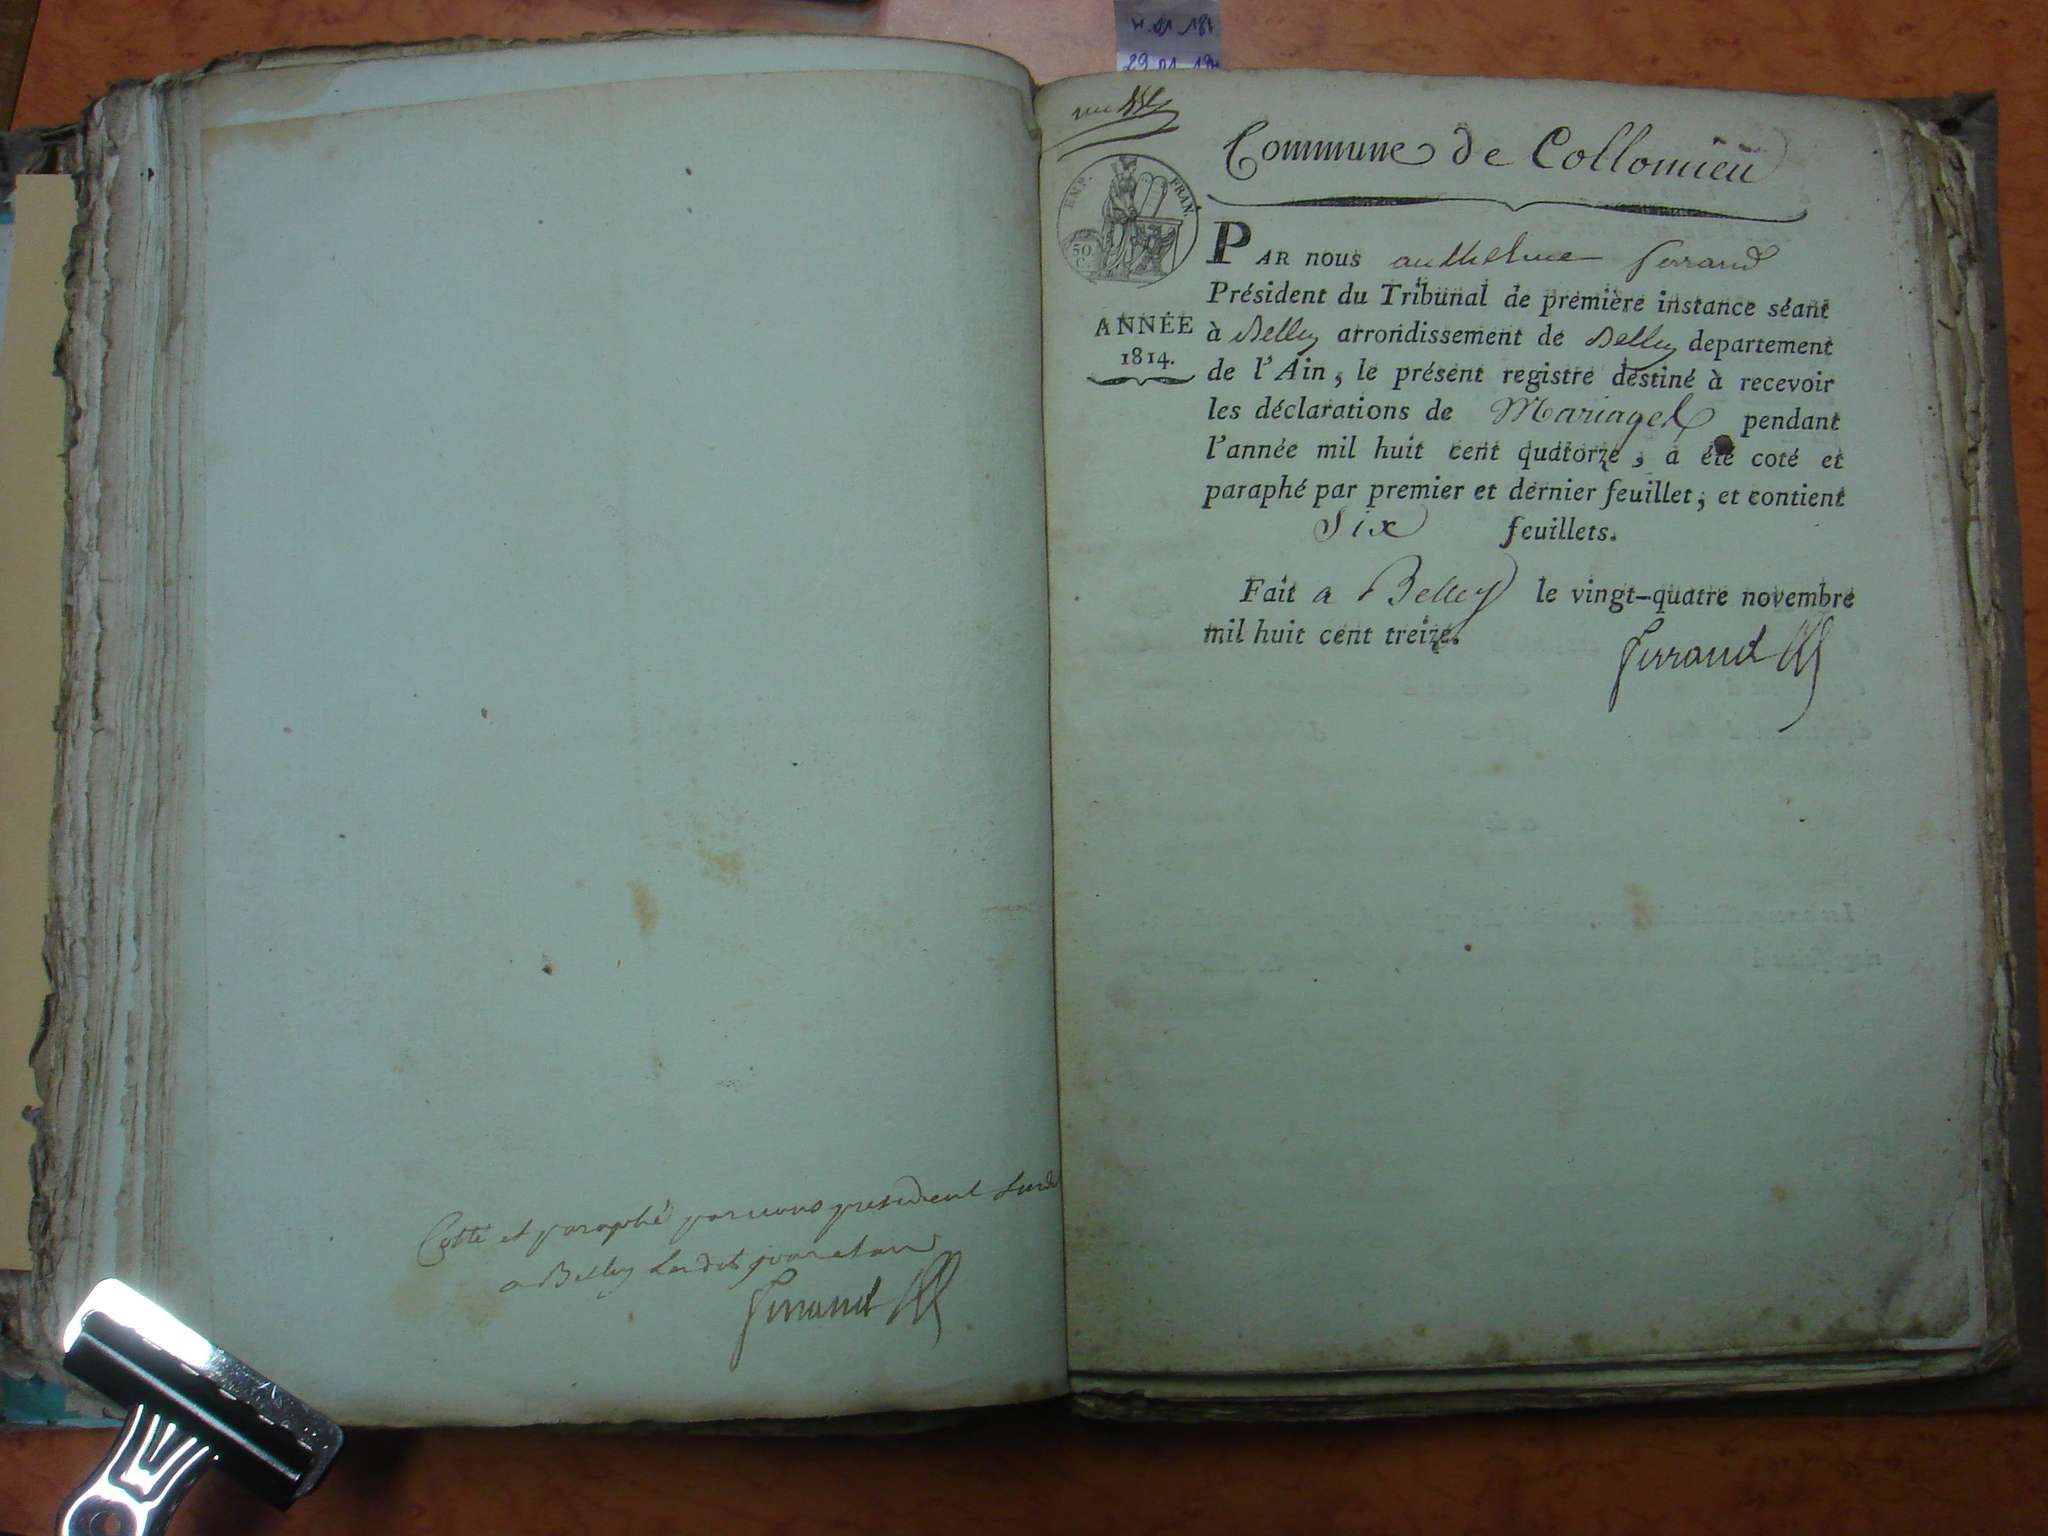 Cotté et paraphé par nous président Susdt
a Belley Lesdits jour et an
Ferrand
Commune de Collomieu
EMP. FRAN.
50 C.
ANNÉE
1814.
PAR nous anthelme ferrand
Président du Tribunal de première instance séant
à Belley arrondissement de Belley departement
de l'Ain, le présent registre destiné à recevoir
les déclarations de Mariages pendant
l'année mil huit cent quatorze, a été coté et
paraphé par premier et dernier feuillet, et contient
Six feuillets.
Fait a Belley le vingt-quatre novembre
mil huit cent treize.
ferrand